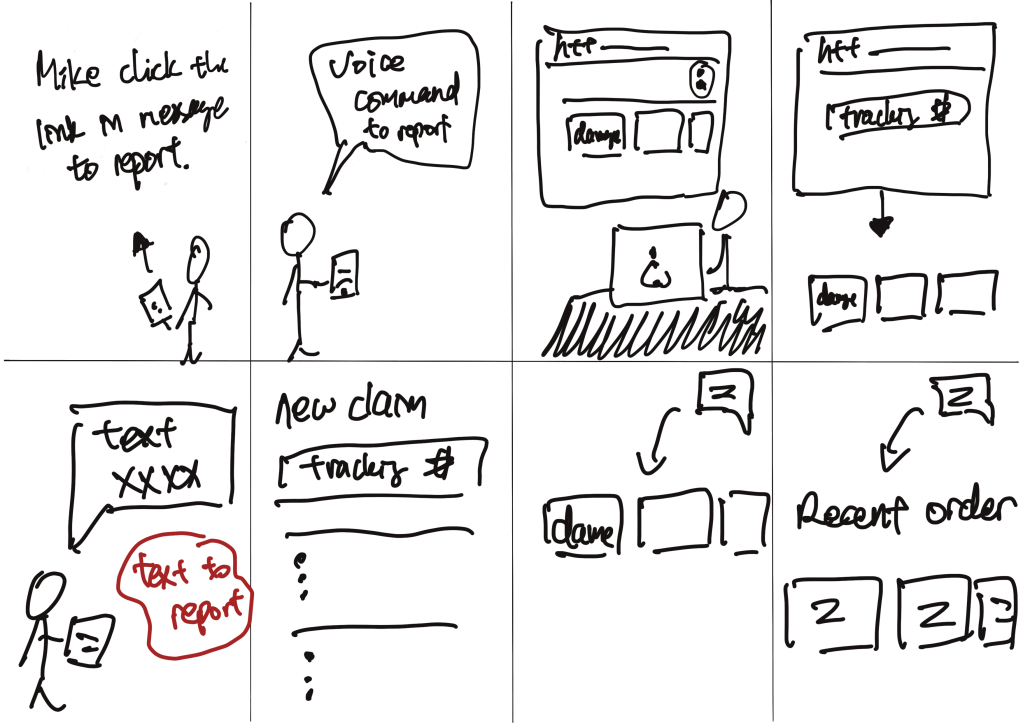 Mike click the
link in message
to report.
voice
command
to report
htt
damage
htt
tracking #
damage
text
XXXX
text to
report
new claim
tracking #
damage
Z
Z
Recent order
Z
Z